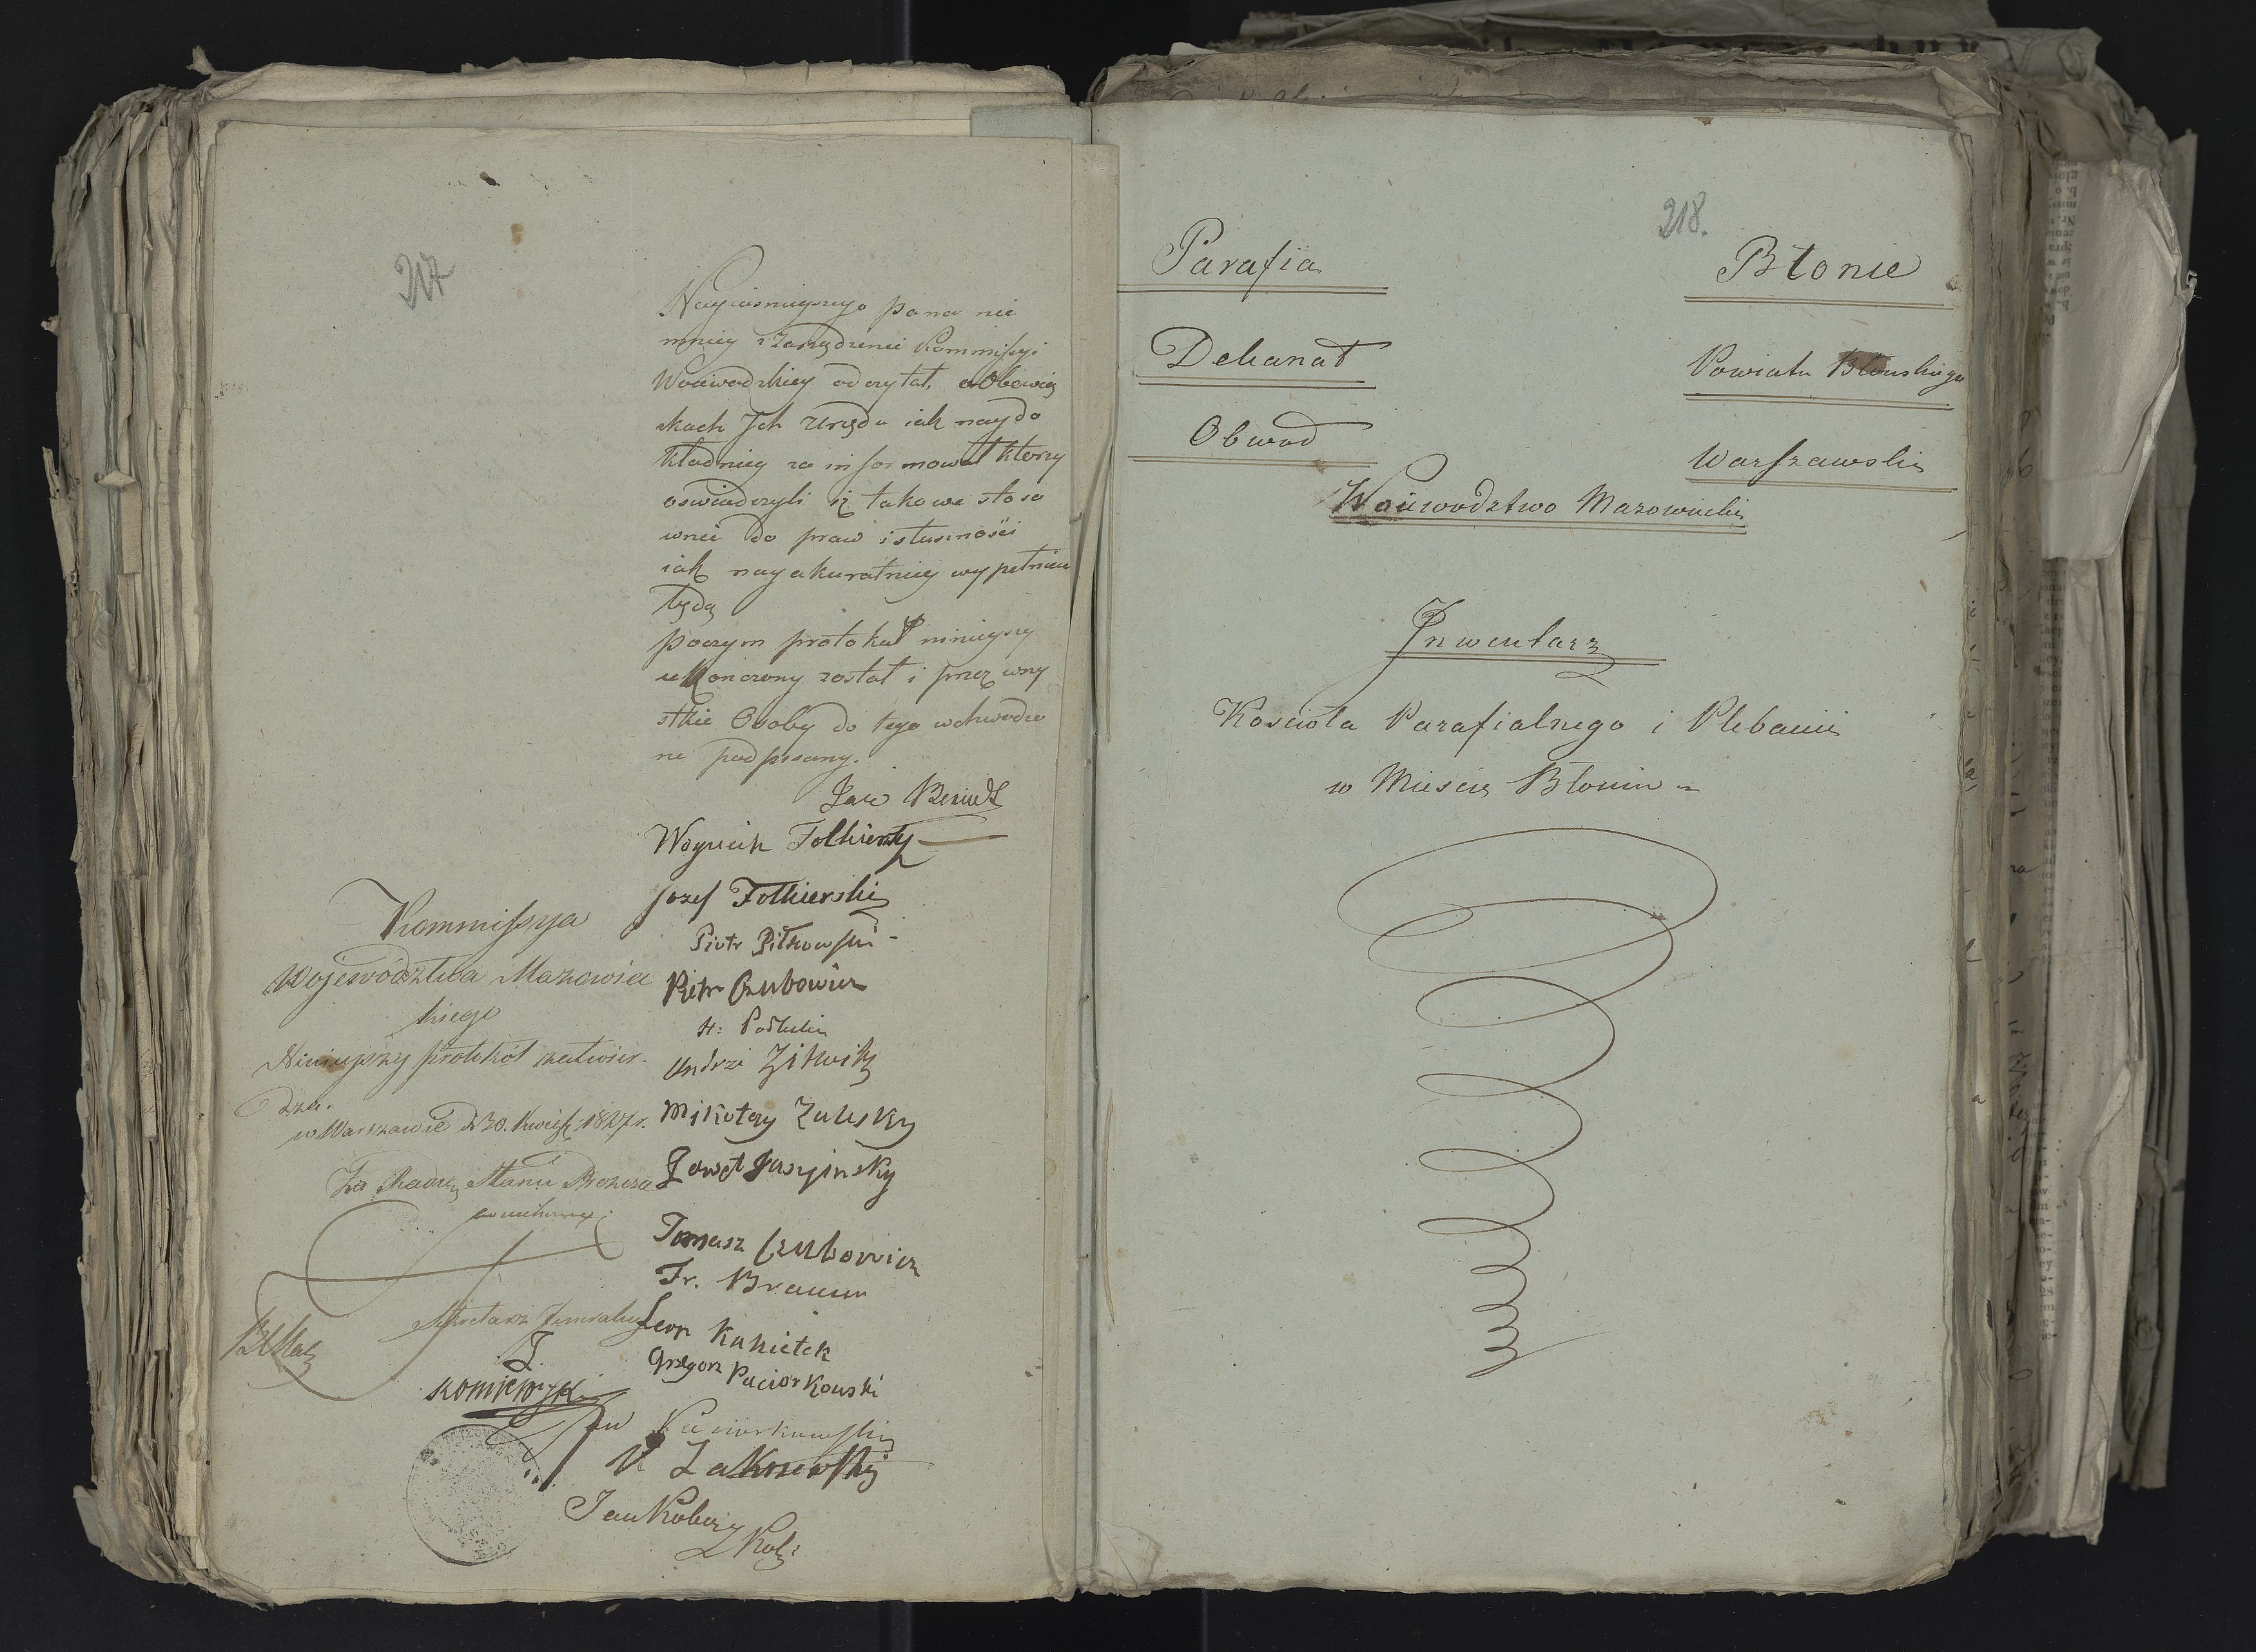 217
Nayiaśnieyszego pana nie
mniey i Zarządzenie Kommissyi
Woiewodzkiey odczytał, o Obowią
zkach Ich Urzędu iak naydo
kładniey za informował którzy
oswiadczyli iż takowe stoso
wnie do praw i słuszności
iak nayakuratniey wypełniać
będą
poczym protokuł ninieyszy
ukonczony został i przez wszy
stkie Osoby do tego wchwodzo
ne podpisany.
Woyciech Folkierski
Jozef Folkierski
Piotr Piłkowski
Piotr Czubowicz
Mikołay Zalesky
Paweł Jaszinsky
Tomasz Czubowicz
Fr. Braun
Leon Kukiełek
Grzegorz Paciorkowski
Jan Paciorkowski
Jan
Kommissya
Województwa Mazowiec
kiego
Ninieyszy protokół zatwier-
dza.
w Warszawie d 30. Kwiet: 1827 r.
Za Radcę Stanu Prezesa
Sekretarz Jeneralny
218.
Parafia Błonie
Dekanat Powiatu Błonskiego
Obwod Warszawski
Woiewodztwo Mazowieckie
Inwentarz
Kościoła Parafialnego i Plebanii
w Mieście Błoniu